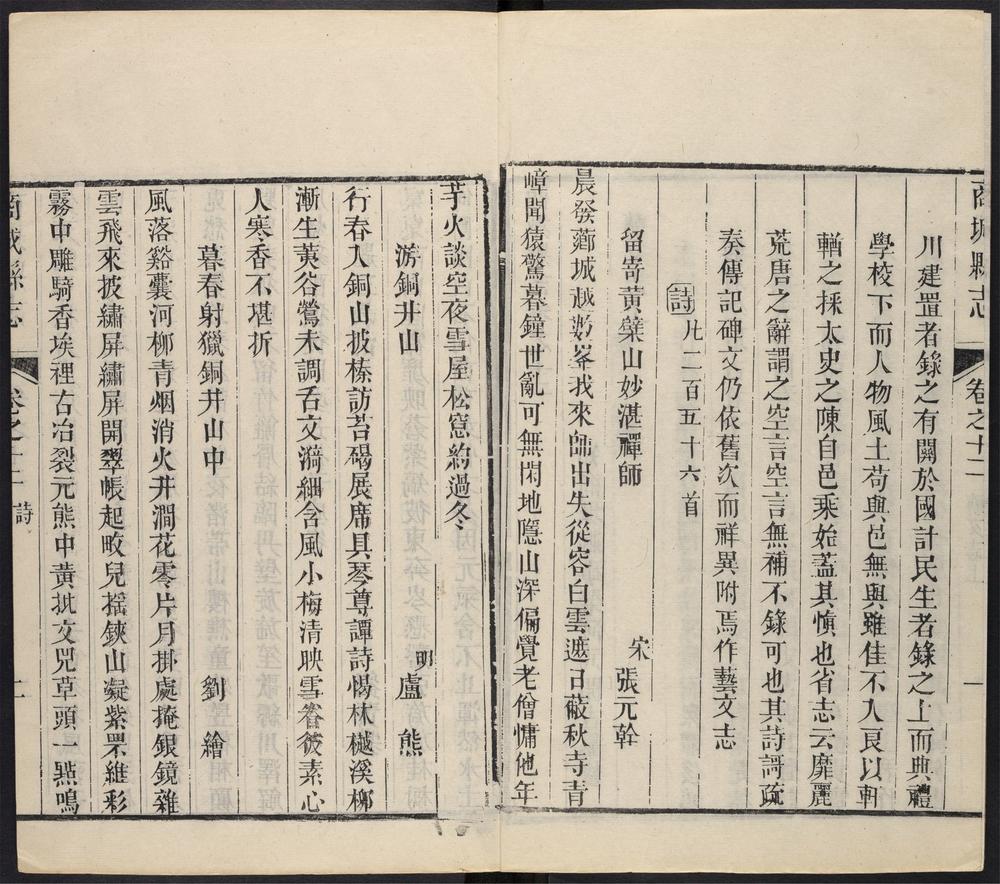 商城縣志
卷之十二
一
川建置者錄之有關於國計民生者錄之上而典禮
學校下而人物風土苟與邑無與雖佳不入良以軒
輶之採太史之陳自邑乘始蓋其慎也省志云靡麗
荒唐之辭謂之空言空言無補不錄可也其詩謌疏
奏傳記碑文仍依舊次而祥異附焉作藝文志
詩凡二百五十六首
留寄黃蘗山妙湛禪師
宋 張元幹
晨發薌城越數峯我來師出失從容白雲遮日蔽秋寺青
嶂聞猿驚暮鐘世亂可無閑地隱山深偏覺老僧慵他年
芋火談空夜雪屋松窻約過冬
游銅井山
明 盧熊
行春入銅山披榛訪苔碣展席具琴尊譚詩愒林樾溪柳
漸生荑谷鶯未調舌文漪細含風小梅清映雪眷彼素心
人寒香不堪折
暮春射獵銅井山中
劉繪
風落谿囊河柳青烟消火井澗花零片月掛處掩銀鏡雜
雲飛來披繡屏繡屏開翠帳起畋兒摇鋏山凝紫罘維彩
霧中雕騎香埃裡右冶裂元熊中黄批文兕草頭一點鳴
商城縣志
卷之十二
詩
二